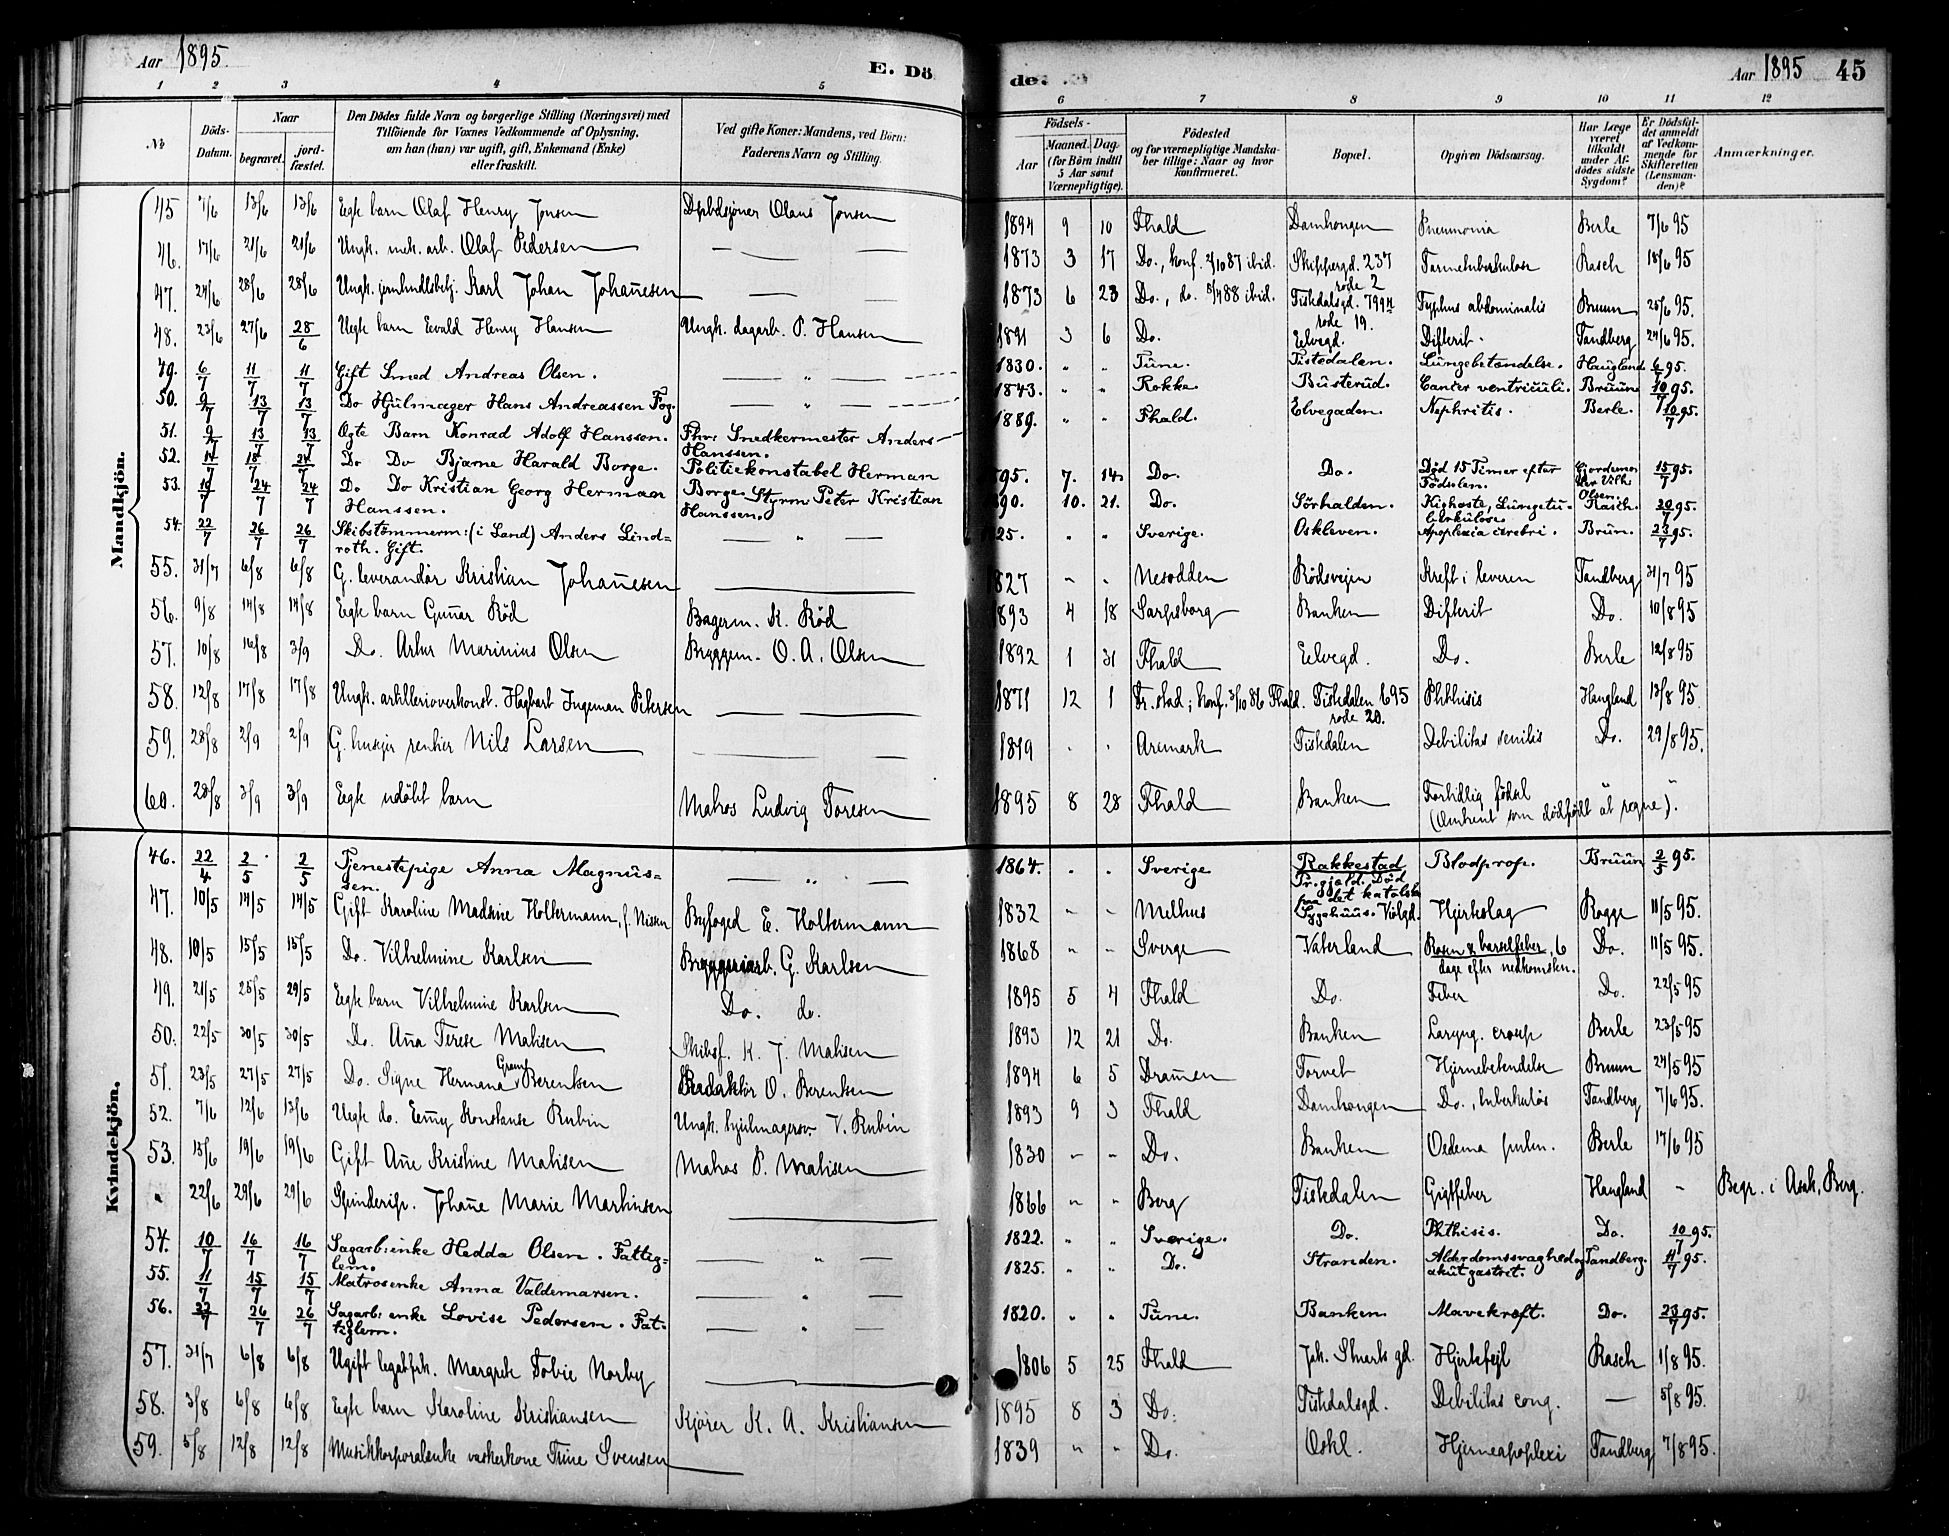 Aar 1895.
E. Dö
de.
Aar 1895 45
1 2 3 4 5 6 7 8 9 10 11 12
No
Döds-Datum.
Naar
begravet. jordfæstet.
Den Dödes fulde Navn og borgerlige Stilling (Næringsvei) med
Tilföiende for Voxnes Vedkommende af Oplysning,
om han (hun) var ugift, gift, Enkemand (Enke)
eller fraskilt.
Ved gifte Koner: Mandens, ved Börn:
Faderens Navn og Stilling.
Födsels-
Aar Maaned. Dag.
(for Börn indtil
5 Aar samt
Værnepligtige).
Födested
og for værnepligtige Mandska-
ber tillige: Naar og hvor
konfirmeret.
Bopæl.
Opgiven Dödsaarsag.
Har Læge
været
tilkaldt
under Af-
dödes sidste
Sygdom?
Er Dödsfal-
det anmeldt
af Vedkom-
mende for
Skifteretten
(Lensman-
den)?
Anmærkninger.
Mandkjön.
45 7/6 13/6 13/6 Egte barn Olaf Henry Jonsen Olaus Jonsen 1894 9 10 Fhald Damhongen Pneumonia Berle 7/6 95
46. 17/6 21/6 21/6 Ungk. mek. arb. Olaf Pedersen 1873 3 17 Do., konf. 2/10 87 ibid. Skippergd. 237 rode 2 Tarmtuberkulose Rasch 18/6 95
47. 24/6 28/6 28/6 Ungk. jernhndlsbetj. Karl Johan Johañesen 1873 6 23 Do., do. 8/4 88 ibid. Tistedalsgd. rode 19. Typhus abdominalis Bruun 25/6 95.
48. 23/6 27/6 28/6 Uegte barn Evald Henry Hansen Ungk. dagarb. P. Hansen 1891 3 6 Do. Elvegd. Difterit. Tandberg 24/6 95.
49. 6/7 11/7 11/7 Gift Smed Andreas Olsen. " 1830. " " Tune. Tistedalen. Lungebetændelse. Haugland 6/7 95.
50. 9/7 13/7 13/7 Do Hjulmager Hans Andreassen Fog. " 1843. " " Rokke. Busterud. Cancer ventriculi. Bruun 10/7 95.
51. 9/7 13/7 13/7 Ægte Barn Konrad Adolf Hanssen. Fhv: Snedkermester Anders Hanssen. 1889. " " Fhald. Elvegaden. Nephritis. Berle. 10/7 95.
52. 14/7 18/7 24/7 Do Do Bjarne Harald Borge. Politiekonstabel Herman Borge. 895. 7. 14 Do. Do. Död 15 Timer efter Födselen. Gjordemor Olsen. 15/7 95.
53. 19/7 24/7 24/7 Do Do Kristian Georg Herman Hanssen. Styrm Peter Kristian Hanssen. 890. 10. 21. Do. Sörhalden. Kighoste, Lungetuberkulose Rasch. 20/7 95.
54. 22/7 26/7 26/7 Skibstömmerm: (i Land) Anders Lindroth. Gift. " 25. " " Sverige. Oskleven. Apoplexia cerebri. Brun. 23/7 95.
55. 31/7 6/8 6/8 G. leverandör Kristian Johañesen 1827 " " Nesodden Rödsveien Kreft i leveren Tandberg 31/7 95
56. 9/8 14/8 14/8 Egte barn Guñar Röd Bagerm. K. Röd 1893 4 18 Sarpsborg Banken Difterit Do. 10/8 95
57. 10/8 16/8 3/9 Do. Artur Marinius Olsen Byggm. O. A. Olsen 1892 1 31 Fhald Elvegd. Do. Berle 12/8 95
58. 12/8 17/8 17/8 Ungk. artillerioverkonst. Hagbart Ingeman Petersen 1871 12 1 Fr.stad; konf. 3/10 86 Fhald. Tistedalen 695 rode 20. Phthisis Haugland 13/8 95
59. 28/8 2/9 2/9 G. huseier rentier Nils Larsen 1819 " " Aremark Tistedalen Debilitas senilis Do. 29/8 95.
60. 28/8 3/9 3/9 Egte udöbt barn Matros Ludvig Toresen 1895 8 28 Fhald Banken Fortidlig födsel " "
(Omtrent som dödfödt at regne).
Kvindekjön.
46. 22/4 2/5 2/5 Tjenestepige Anna Magnussen. " 1864. " " Sverige Rakkestad Prgjæld. Död paa det katolske Sygehuus. Völgd. Blodprop. Bruun 2/5 95.
47. 10/5 14/5 14/5 Gift Karoline Madsine Holtermann, f. Nissen Byfoged E. Holtermann 1832 " " Melhus Hjerteslag Rogge 11/5 95.
48. 10/5 15/5 15/5 Do. Vilhelmine Karlsen Bryggeriarb. G. Karlsen 1868 " " Sverge Vaterland Rosen & barselfeber, 6 dage efter nedkomsten. Do. 11/5 95.
49. 21/5 25/5 29/5 Egte barn Vilhelmine Karlsen Do. do. 1895 5 4 Fhald Do. Feber Do. 22/5 95
50. 22/5 30/5 30/5 Do. Aña Terese Matisen Skibsf. K. J. Matisen 1893 12 21 Do. Banken Laryng. croup Berle 23/5 95
51. 23/5 27/5 27/5 Do. Signe Hermana Gram Berentsen Redaktör O. Berentsen 1894 6 5 Drañen Torvet Hjernebetendelse Bruun 24/5 95
52. 7/6 12/6 13/6 Uegte do. Eñy Konstanse Rubin Ungk. hjulmagersv. V. Rubin 1893 9 3 Fhald Damhongen Do., tuberkulös Tandberg 7/6 95.
53. 15/6 19/6 19/6 Gift Añe Kristine Matisen Matros P. Matisen 1830 " " Do. Banken Oedema pulm. Berle 17/6 95
" 22/6 29/6 29/6 Spinderip. Johañe Marie Martinsen 1866 " " Berg Tistedalen Gigtfeber Haugland - Begr. i Asak, Berg.
54. 10/7 16/7 16/7 Sagarb: enke Hedda Olsen. Fattiglem. " 1822. " " Sverige. Do. Phthisis. Do. 10/7 95.
55. 11/7 15/7 15/7 Matrosenke Anna Valdemarsen. " 1825. " " Do. Stranden. Alderdomssvaghed og akut gastret. Tandberg. 11/7 95.
56. 22/7 26/7 26/7 Sagarb: enke Lovise Pedersen. Fattiglem. " 1820. " " Tune. Banken. Mavekræft. Do. 23/7 95.
57. 31/7 6/8 6/8 Ugift legatfrk. Margrete Tobie Norby 1806 5 25 Fhald Joh. Stuarts gd. Hjertefejl Rasch 1/8 95.
58. 3/8 6/8 6/8 Egte barn Karoline Kristiansen Kjörer K. A. Kristiansen 1895 8 3 Do. Tistedalsgd. Debilitas cong. — 5/8 95.
59. 5/8 12/8 12/8 Musikkorporalenke vaskerkone Trine Svensen 1839 " " Do. Oskl. Hjerneapoplexi Tandberg 7/8 95.